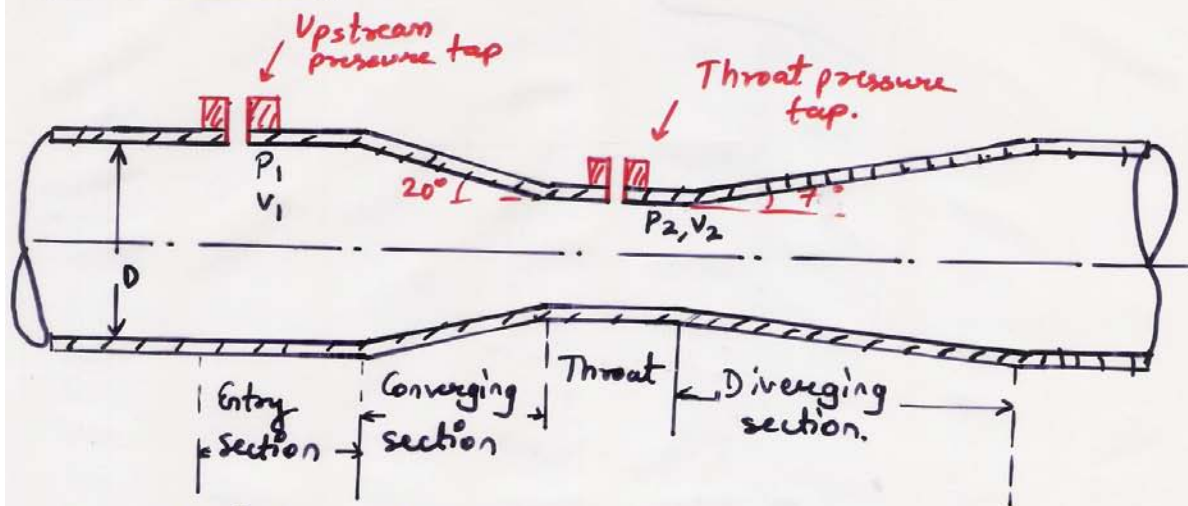 Upstream
pressure tap
Throat pressure
tap.
P1
V1
20°
P2, V2
7°
D
Entry
section
Converging
section
Throat
Diverging
section.